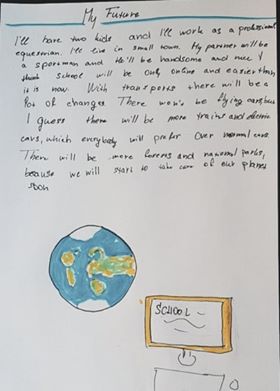 My Future
I'll have two kids and I'll work as a professional
equestrian. I'll live in small town. My partner will be
a sportman and He'll be handsome and nice I
think school will be only online and easier than
it is now. With transports there will be a
lot of changes. There won't be flying cars, but
I guess there will be more trains and electric
cars, which everybody will prefer over normal cars.
There will be more forests and national parks,
because we will start to take care of our planet
soon
SCHOOL